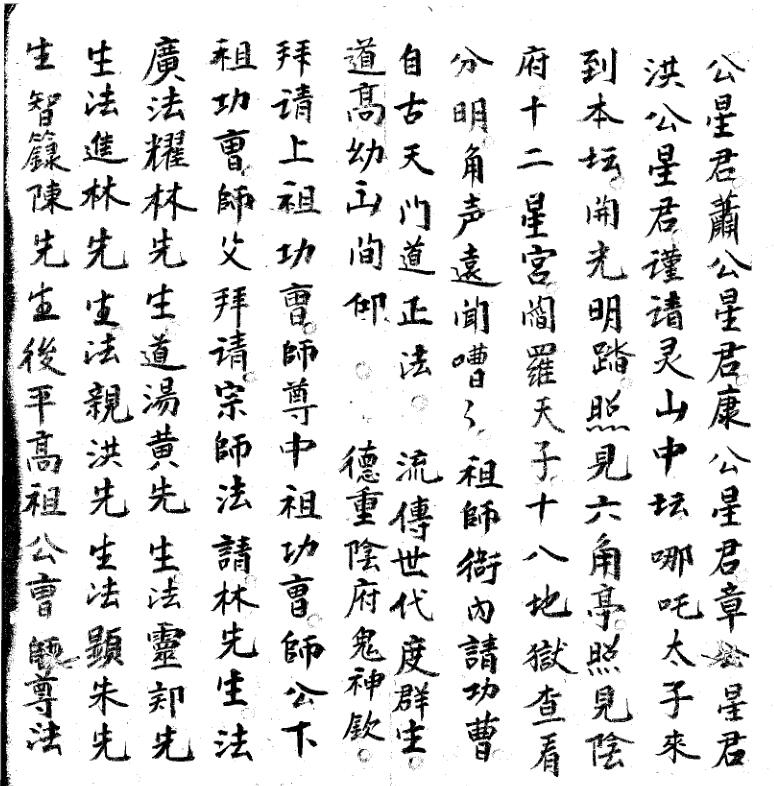 公星君蕭公星君康公星君章公星君
洪公星君谨请灵山中坛哪吒太子來
到本坛開光明踏照見六角亭照見陰
府十二星宮閻羅天子十八地獄查看
分明角声遠聞嘈〻祖師衙內請功曹
自古天门道正法。流傳世代度群生。
道高幼间仰。德重陰府鬼神欽。
拜请上祖功曹師尊中祖功曹師公下
祖功曹師父拜请宗師法請林先生法
廣法耀林先生道湯黄先生法靈郑先
生法進林先生法親洪先生法顯朱先
生智籙陳先生後平高祖公曹師尊法